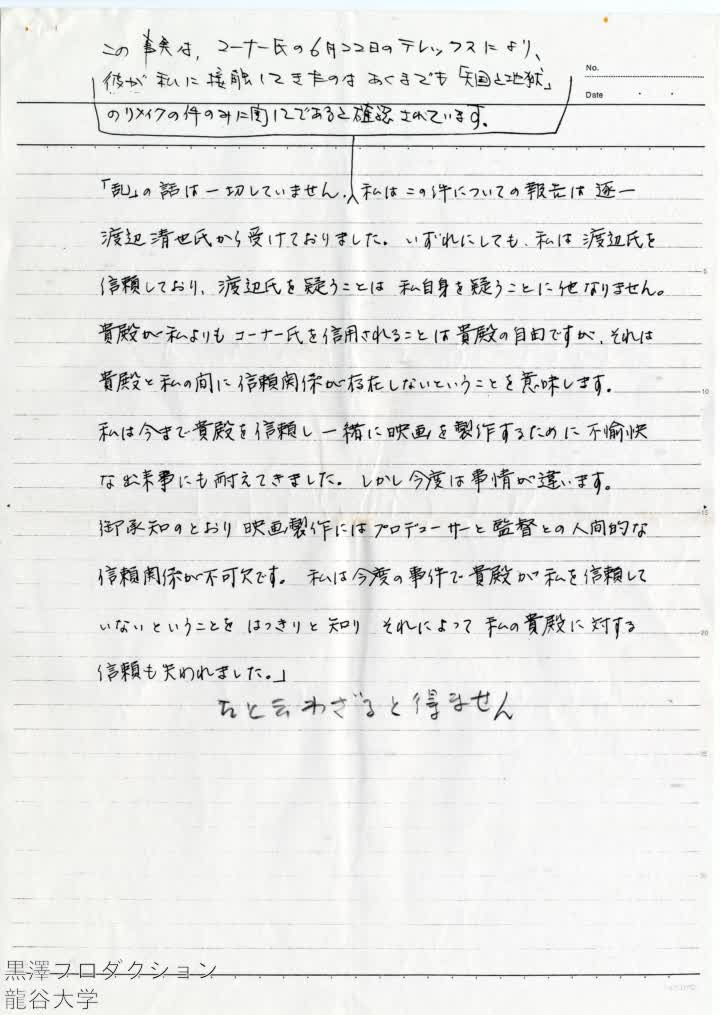 この事実は、コーナー氏の6月22日のテレックスにより、
彼が私に接触してきたのはあくまでも「天国と地獄」
のリメイクの件のみに関してであると確認されています。
No.
Date
「乱」の話は一切していません。私はこの件についての報告は逐一
渡辺清也氏から受けておりました。いずれにしても、私は渡辺氏を
信頼しており、渡辺氏を疑うことは私自身を疑うことに他なりません。
貴殿が私よりもコーナー氏を信用されることは貴殿の自由ですが、それは
貴殿と私の間に信頼関係が存在しないということを意味します。
私は今まで貴殿を信頼し一緒に映画を製作するために不愉快
な出来事にも耐えてきました。しかし今度は事情が違います。
御承知のとおり映画製作にはプロデューサーと監督との人間的な
信頼関係が不可欠です。私は今度の事件で貴殿が私を信頼して
いないということをはっきりと知り それによって私の貴殿に対する
信頼も失われました。」
と云わざると得ません
5
10
15
20
25
30
黒澤プロダクション
龍谷大学